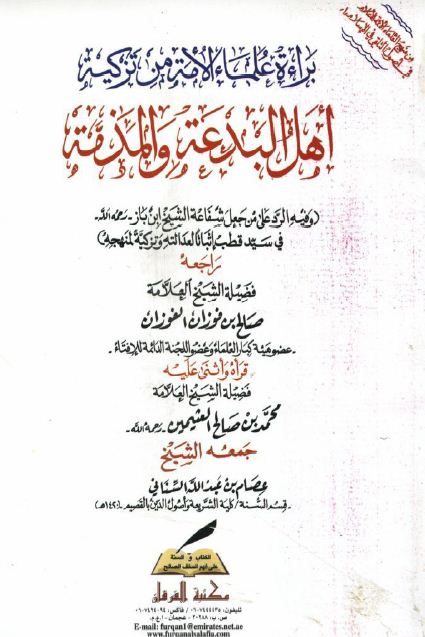 براءة علماء الأمة من تزكية
أهل البدعة والمذمة
(وفيه الرد على من جعل شفاعة الشيخ ابن باز - رحمه الله -
في سيد قطب إثباتا لعدالته وتزكية لمنهجه)
راجعه
فضيلة الشيخ العلامة
صالح بن فوزان الفوزان
- عضو هيئة كبار العلماء وعضو اللجنة الدائمة للإفتاء -
قرأه وأثنى عليه
فضيلة الشيخ العلامة
محمد بن صالح العثيمين - رحمه الله -
جمعه الشيخ
عصام بن عبد الله السناني
- قسم السنة / كلية الشريعة وأصول الدين بالقصيم - (١٤٢٠هـ)
الكتاب و السنة
على فهم السلف الصالح
مكتبة الفرقان
تليفون: ٠٦٧٤٤٤٤٣٥ / فاكس: ٠٦٧٤٩٤٠٩٤
ص.ب: ٢٠٢٩٨٨ - عجمان - ا.ع.م.
E-mail: furqan1@emirates.net.ae
www.furqanalsalafia.com